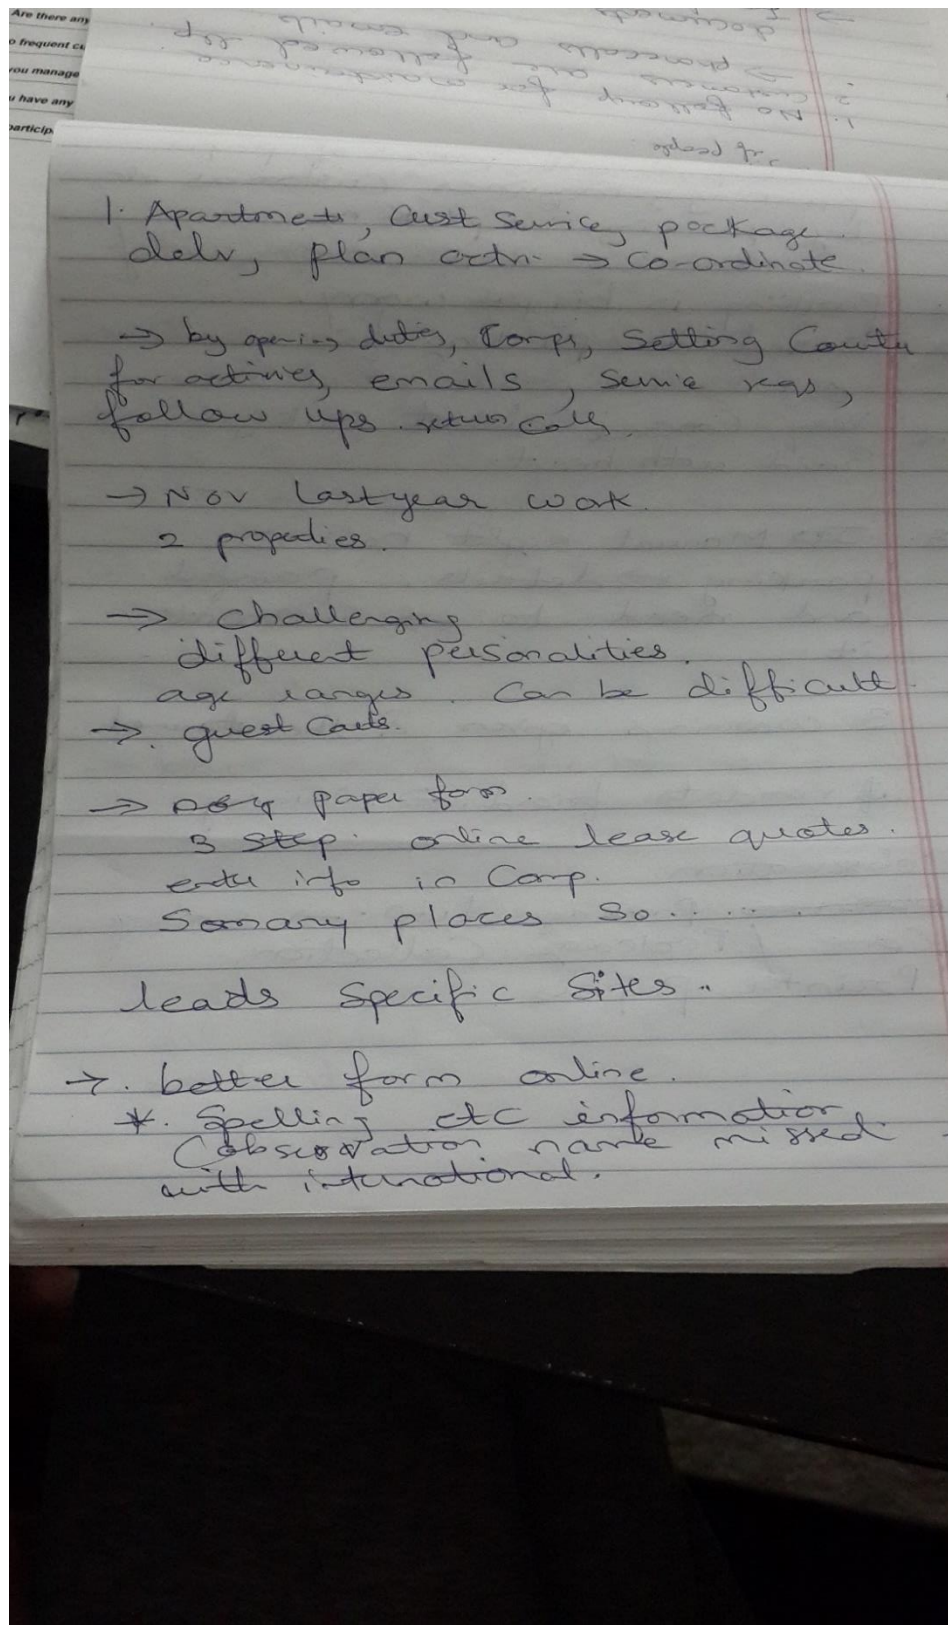 Are there any
o frequent cu
you manage
u have any
particip
documents
→ phonecalls and emails
2. customers are followed up
1. No followup for maintenance
of people
1. Apartments, Cust Service, package
delv, plan actn. → Co-ordinate.
→ by opening duties, Comps, Setting
for activies, emails, service reqs,
follow ups. return calls
→ Nov last year work.
2 properties.
→ Challenging
different personalities.
age ranges. Can be difficult.
→. guest Cards.
→ paper form.
3 step. online lease quotes.
enter info in Comp.
Somany places so.....
leads specific sites..
→. better form online.
*. Spelling etc information
(observation name missed
with international.